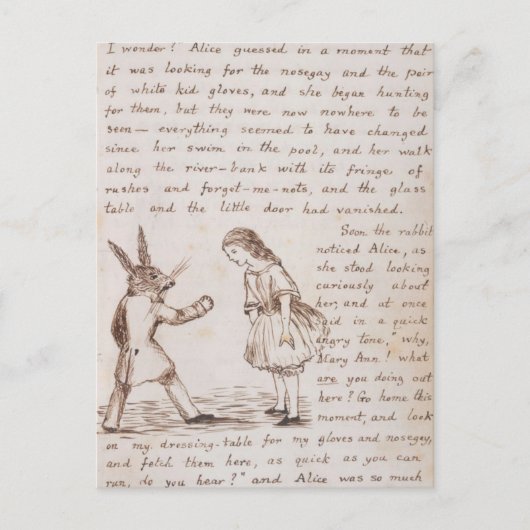 I wonder?" Alice guessed in a moment that
it was looking for the nosegay and the pair
of white kid gloves, and she began hunting
for them, but they were now nowhere to be
seen — everything seemed to have changed
since her swim in the pool, and her walk
along the river-bank with its fringe of
rushes and forget-me-nots, and the glass
table and the little door had vanished.
Soon the rabbit
noticed Alice, as
she stood looking
curiously about
her, and at once
said in a quick
angry tone, "why,
Mary Ann! what
are you doing out
here? Go home this
moment, and look
on my dressing-table for my gloves and nosegay,
and fetch them here, as quick as you can
run, do you hear?" and Alice was so much